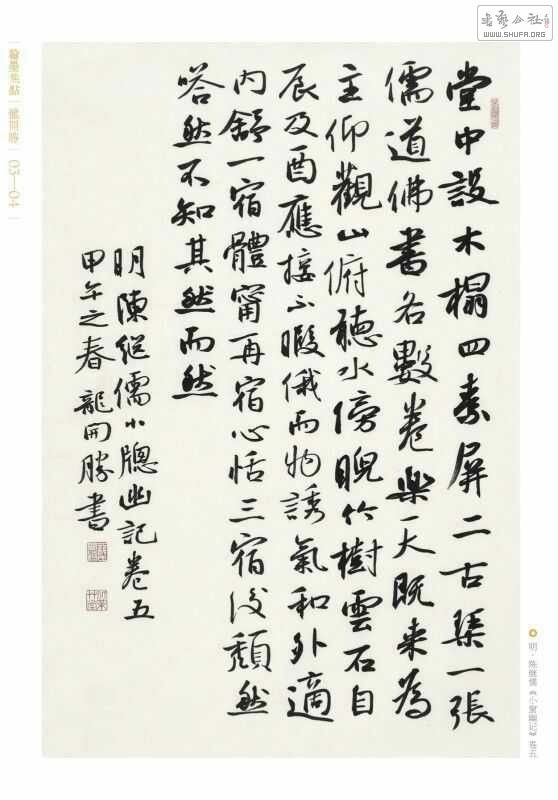 堂中設木榻四素屏二古琴一張
儒道佛書各數卷樂天既来為
主仰觀山俯聴水傍睨竹樹雲石自
辰及酉應接不暇俄而物誘氣和外適
内舒一宿體甯再宿心恬三宿後頹然
嗒然不知其然而然
明陳继儒小牕幽記卷五
甲午之春龍開勝書
明·陈继儒《小窗幽记》卷五
翰墨焦點
龍開勝
03—04
书艺公社
WWW.SHUFA.ORG